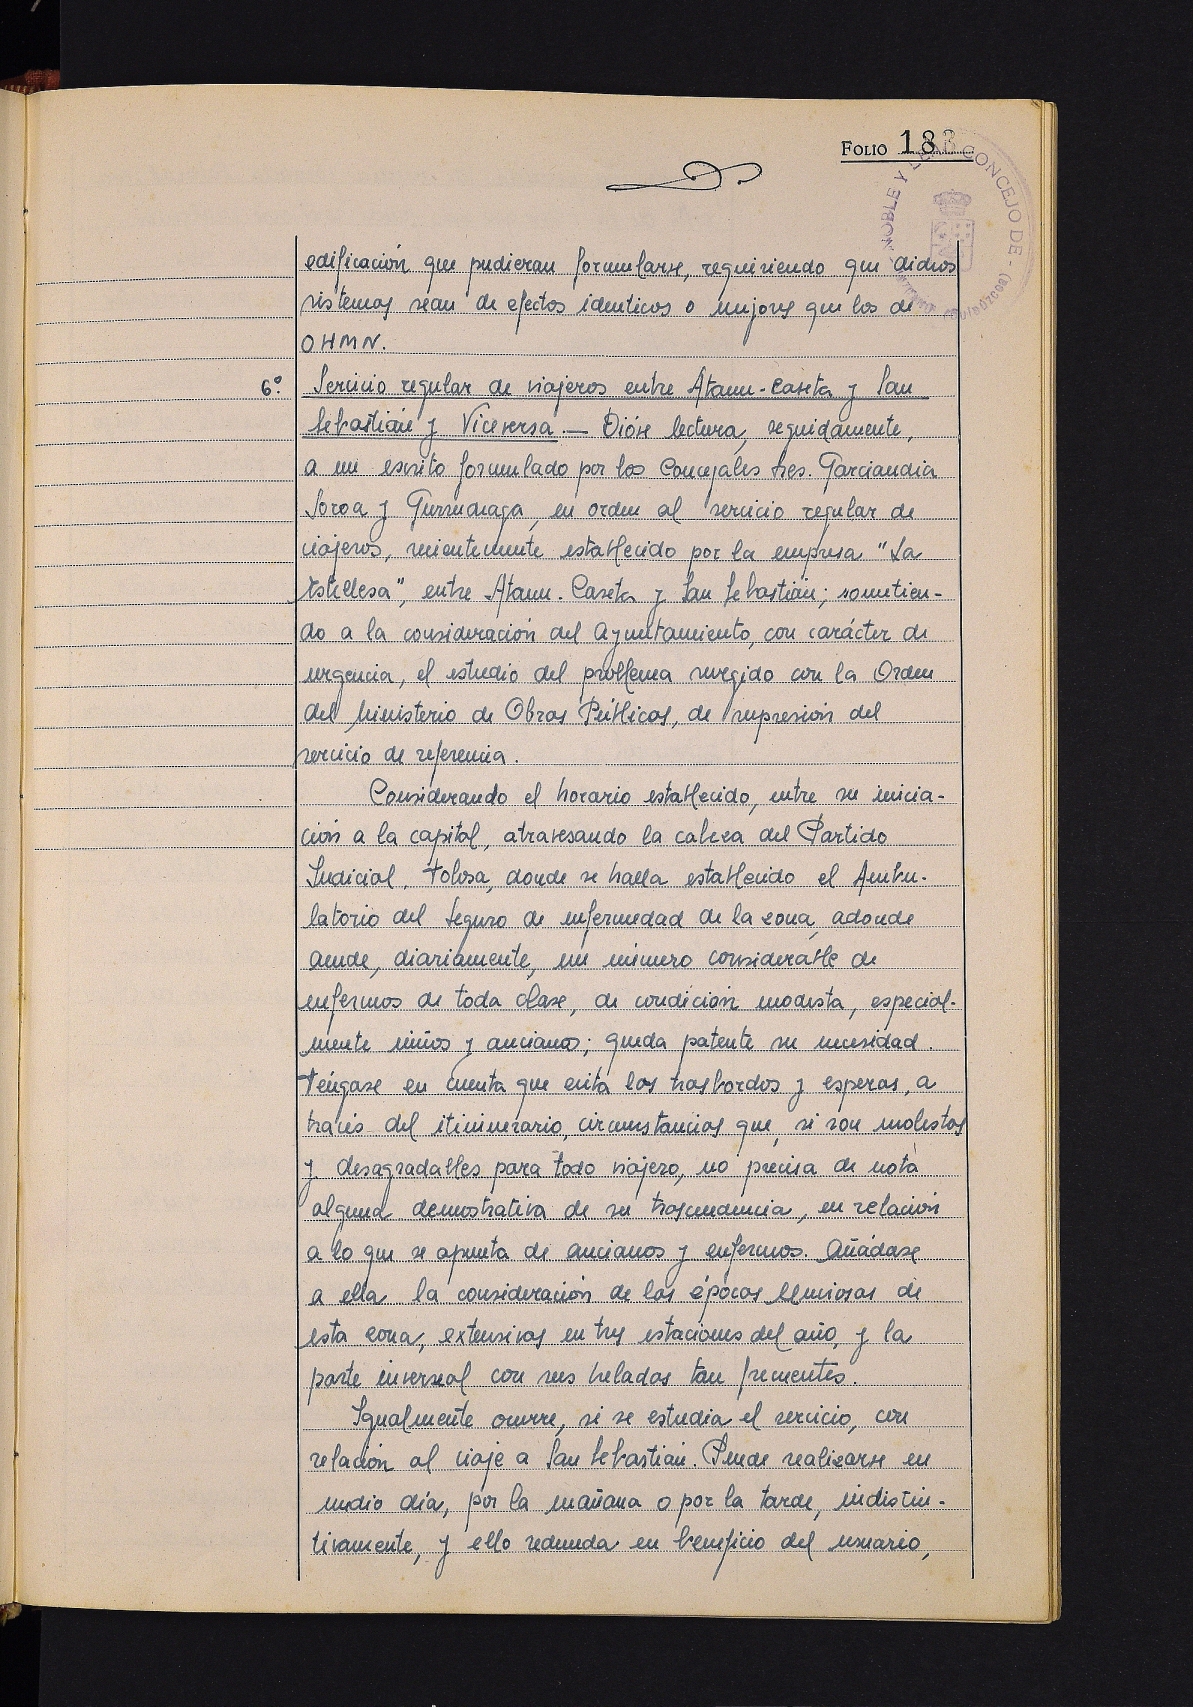 FOLIO 183
NOBLE Y LEAL CONCEJO DE - (Guipúzcoa)
edificación que pudieran formularse, requiriendo que dichos
sistemas sean de efectos identicos o mejores que los de
OHMN.
6º. Servicio regular de viajeros entre Ataun-Caseta y San
Sebastián y Viceversa.— Dióse lectura, seguidamente,
a un escrito formulado por los Concejales Sres. Garciandia
Soroa y Gurruchaga, en orden al servicio regular de
viajeros, recientemente establecido por la empresa "La
Estellesa", entre Ataun-Caseta y San Sebastián; sometien-
do a la consideración del Ayuntamiento, con carácter de
urgencia, el estudio del problema surgido con la Orden
del Ministerio de Obras Públicas, de supresión del
servicio de referencia.
Considerando el horario establecido, entre su inicia-
ción a la capital, atravesando la cabeza del Partido
Judicial, Tolosa, donde se halla establecido el Ambu-
latorio del Seguro de enfermedad de la zona, adonde
acude, diariamente, un número considerable de
enfermos de toda clase, de condición modesta, especial-
mente niños y ancianos; queda patente su necesidad.
Téngase en cuenta que evita los trasbordos y esperas, a
través del itininerario, circunstancias que, si son molestas
y desagradables para todo viajero, no precisa de nota
alguna demostrativa de su trascendencia, en relación
a lo que se apunta de ancianos y enfermos. Añádase
a ella la consideración de las épocas lluviosas de
esta zona, extensivas en tres estaciones del año, y la
parte invernal con sus heladas tan frecuentes.
Igualmente ocurre, si se estudia el servicio, con
relación al viaje a San Sebastián. Puede realizarse en
medio día, por la mañana o por la tarde, indistin-
tivamente, y ello redunda en beneficio del usuario,